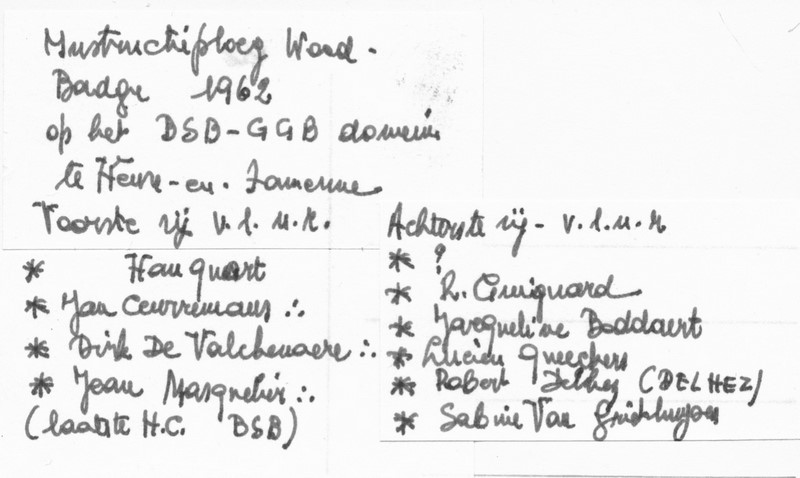 Instructieploeg Wood-
Badge 1962
op het DSB-GGB domein
te Heure-en-Famenne
Voorste rij v.l.n.r.
* Hauquart
* Jan Ceurremans ∴
* Dirk De Valckenaere ∴
* Jean Masquelier ∴
(laatste H.C. DSB)
Achterste rij - v.l.n.r
* ?
* R. Guignard
* Jacqueline Boddaert
* Lucien
* Robert Delhez (DELHEZ)
* Sabine Van